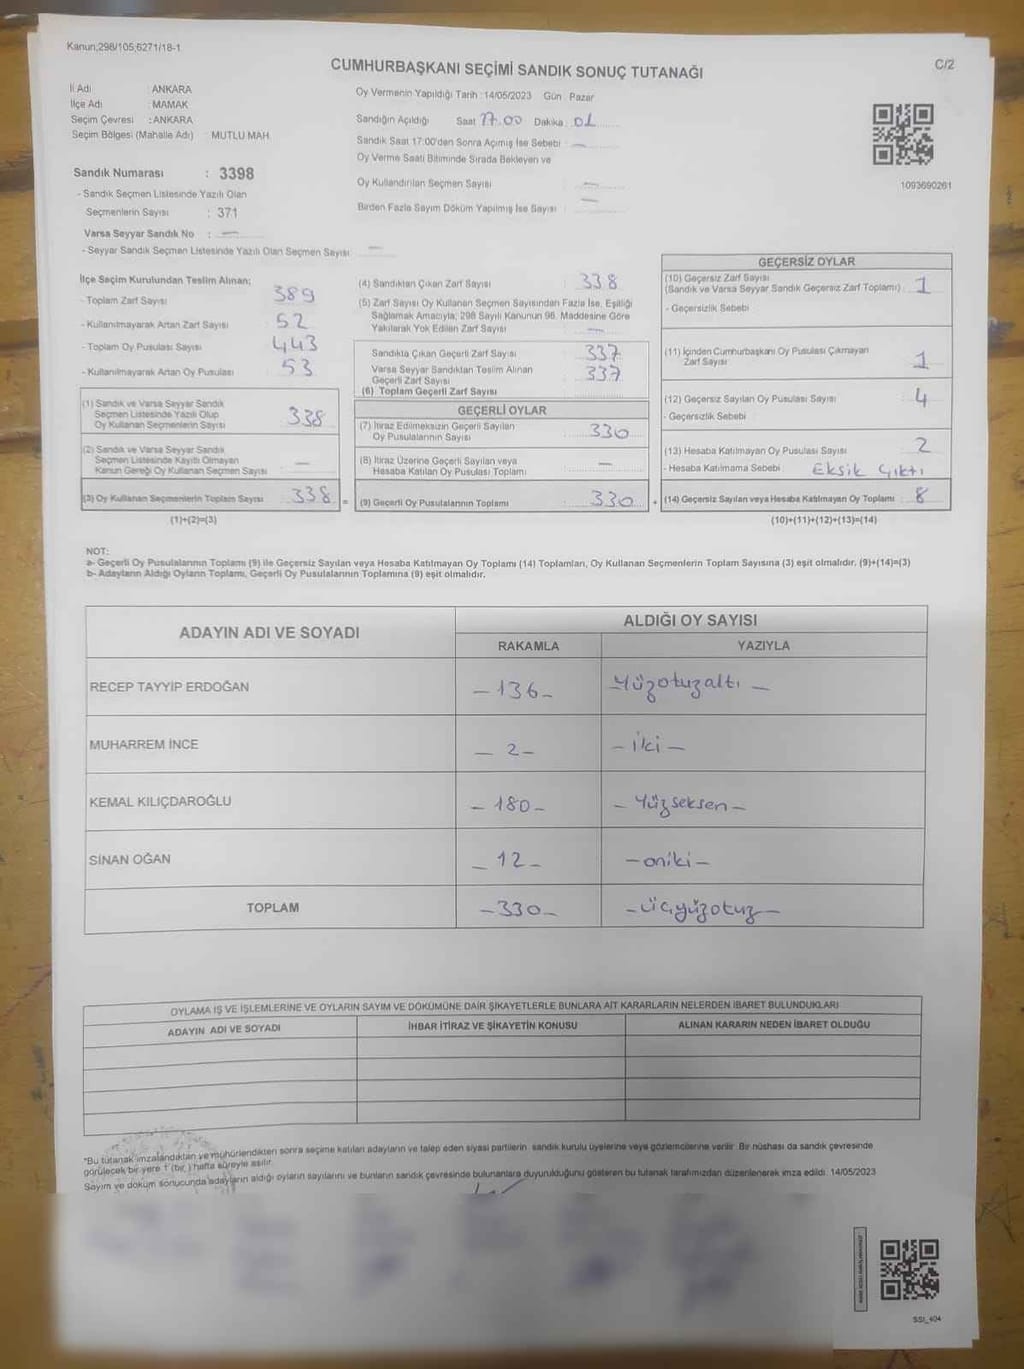 Kanun;298/105;6271/18-1
CUMHURBAŞKANI SEÇİMİ SANDIK SONUÇ TUTANAĞI
C/2
İl Adı : ANKARA
İlçe Adı : MAMAK
Seçim Çevresi : ANKARA
Seçim Bölgesi (Mahalle Adı) : MUTLU MAH.
Oy Vermenin Yapıldığı Tarih :14/05/2023 Gün : Pazar
Sandığın Açıldığı Saat 17.00 Dakika 01
Sandık Saat 17:00'den Sonra Açımış İse Sebebi : —
Oy Verme Saati Bitiminde Sırada Bekleyen ve
Oy Kullandırılan Seçmen Sayısı : —
Birden Fazla Sayım Döküm Yapılmış İse Sayısı : —
1093690261
Sandık Numarası : 3398
- Sandık Seçmen Listesinde Yazılı Olan
Seçmenlerin Sayısı : 371
Varsa Seyyar Sandık No : —
- Seyyar Sandık Seçmen Listesinde Yazılı Olan Seçmen Sayısı : —
İlçe Seçim Kurulundan Teslim Alınan;
- Toplam Zarf Sayısı : 389
- Kullanılmayarak Artan Zarf Sayısı : 52
- Toplam Oy Pusulası Sayısı : 443
- Kullanılmayarak Artan Oy Pusulası : 53
(1) Sandık ve Varsa Seyyar Sandık
Seçmen Listesinde Yazılı Olup
Oy Kullanan Seçmenlerin Sayısı : 338
(2) Sandık ve Varsa Seyyar Sandık
Seçmen Listesinde Kayıtlı Olmayan
Kanun Gereği Oy Kullanan Seçmen Sayısı : —
(3) Oy Kullanan Seçmenlerin Toplam Sayısı : 338 =
(1)+(2)=(3)
(4) Sandıktan Çıkan Zarf Sayısı : 338
(5) Zarf Sayısı Oy Kullanan Seçmen Sayısından Fazla İse, Eşitliği
Sağlamak Amacıyla; 298 Sayılı Kanunun 98. Maddesine Göre
Yakılarak Yok Edilen Zarf Sayısı : —
Sandıkta Çıkan Geçerli Zarf Sayısı : 337
Varsa Seyyar Sandıktan Teslim Alınan
Geçerli Zarf Sayısı : 337
(6) Toplam Geçerli Zarf Sayısı
GEÇERLİ OYLAR
(7) İtiraz Edilmeksizin Geçerli Sayılan
Oy Pusulalarının Sayısı : 330
(8) İtiraz Üzerine Geçerli Sayılan veya
Hesaba Katılan Oy Pusulası Toplamı : —
(9) Geçerli Oy Pusulalarının Toplamı : 330 +
GEÇERSİZ OYLAR
(10) Geçersiz Zarf Sayısı
(Sandık ve Varsa Seyyar Sandık Geçersiz Zarf Toplamı) : 1
- Geçersizlik Sebebi
(11) İçinden Cumhurbaşkanı Oy Pusulası Çıkmayan
Zarf Sayısı : 1
(12) Geçersiz Sayılan Oy Pusulası Sayısı : 4
- Geçersizlik Sebebi
(13) Hesaba Katılmayan Oy Pusulası Sayısı : 2
- Hesaba Katılmama Sebebi Eksik Çıktı
(14) Geçersiz Sayılan veya Hesaba Katılmayan Oy Toplamı : 8
(10)+(11)+(12)+(13)=(14)
NOT:
a- Geçerli Oy Pusulalarının Toplamı (9) ile Geçersiz Sayılan veya Hesaba Katılmayan Oy Toplamı (14) Toplamları, Oy Kullanan Seçmenlerin Toplam Sayısına (3) eşit olmalıdır. (9)+(14)=(3)
b- Adayların Aldığı Oyların Toplamı, Geçerli Oy Pusulalarının Toplamına (9) eşit olmalıdır.
ADAYIN ADI VE SOYADI
ALDIĞI OY SAYISI
RAKAMLA YAZIYLA
RECEP TAYYİP ERDOĞAN —136— —Yüzotuzaltı—
MUHARREM İNCE —2— —iki—
KEMAL KILIÇDAROĞLU —180— —Yüzseksen—
SİNAN OĞAN —12— —oniki—
TOPLAM —330— —üçyüzotuz—
OYLAMA İŞ VE İŞLEMLERİNE VE OYLARIN SAYIM VE DÖKÜMÜNE DAİR ŞİKAYETLERLE BUNLARA AİT KARARLARIN NELERDEN İBARET BULUNDUKLARI
ADAYIN ADI VE SOYADI İHBAR İTİRAZ VE ŞİKAYETİN KONUSU ALINAN KARARIN NEDEN İBARET OLDUĞU
*Bu tutanak imzalandıktan ve mühürlendikten sonra seçime katılan adayların ve talep eden siyasi partilerin sandık kurulu üyelerine veya gözlemcilerine verilir. Bir nüshası da sandık çevresinde
görülecek bir yere 1 (bir ) hafta süreyle asılır.
Sayım ve döküm sonucunda adayların aldığı oyların sayılarını ve bunların sandık çevresinde bulunanlara duyurulduğunu gösteren bu tutanak tarafımızdan düzenlenerek imza edildi. 14/05/2023
SSI_404